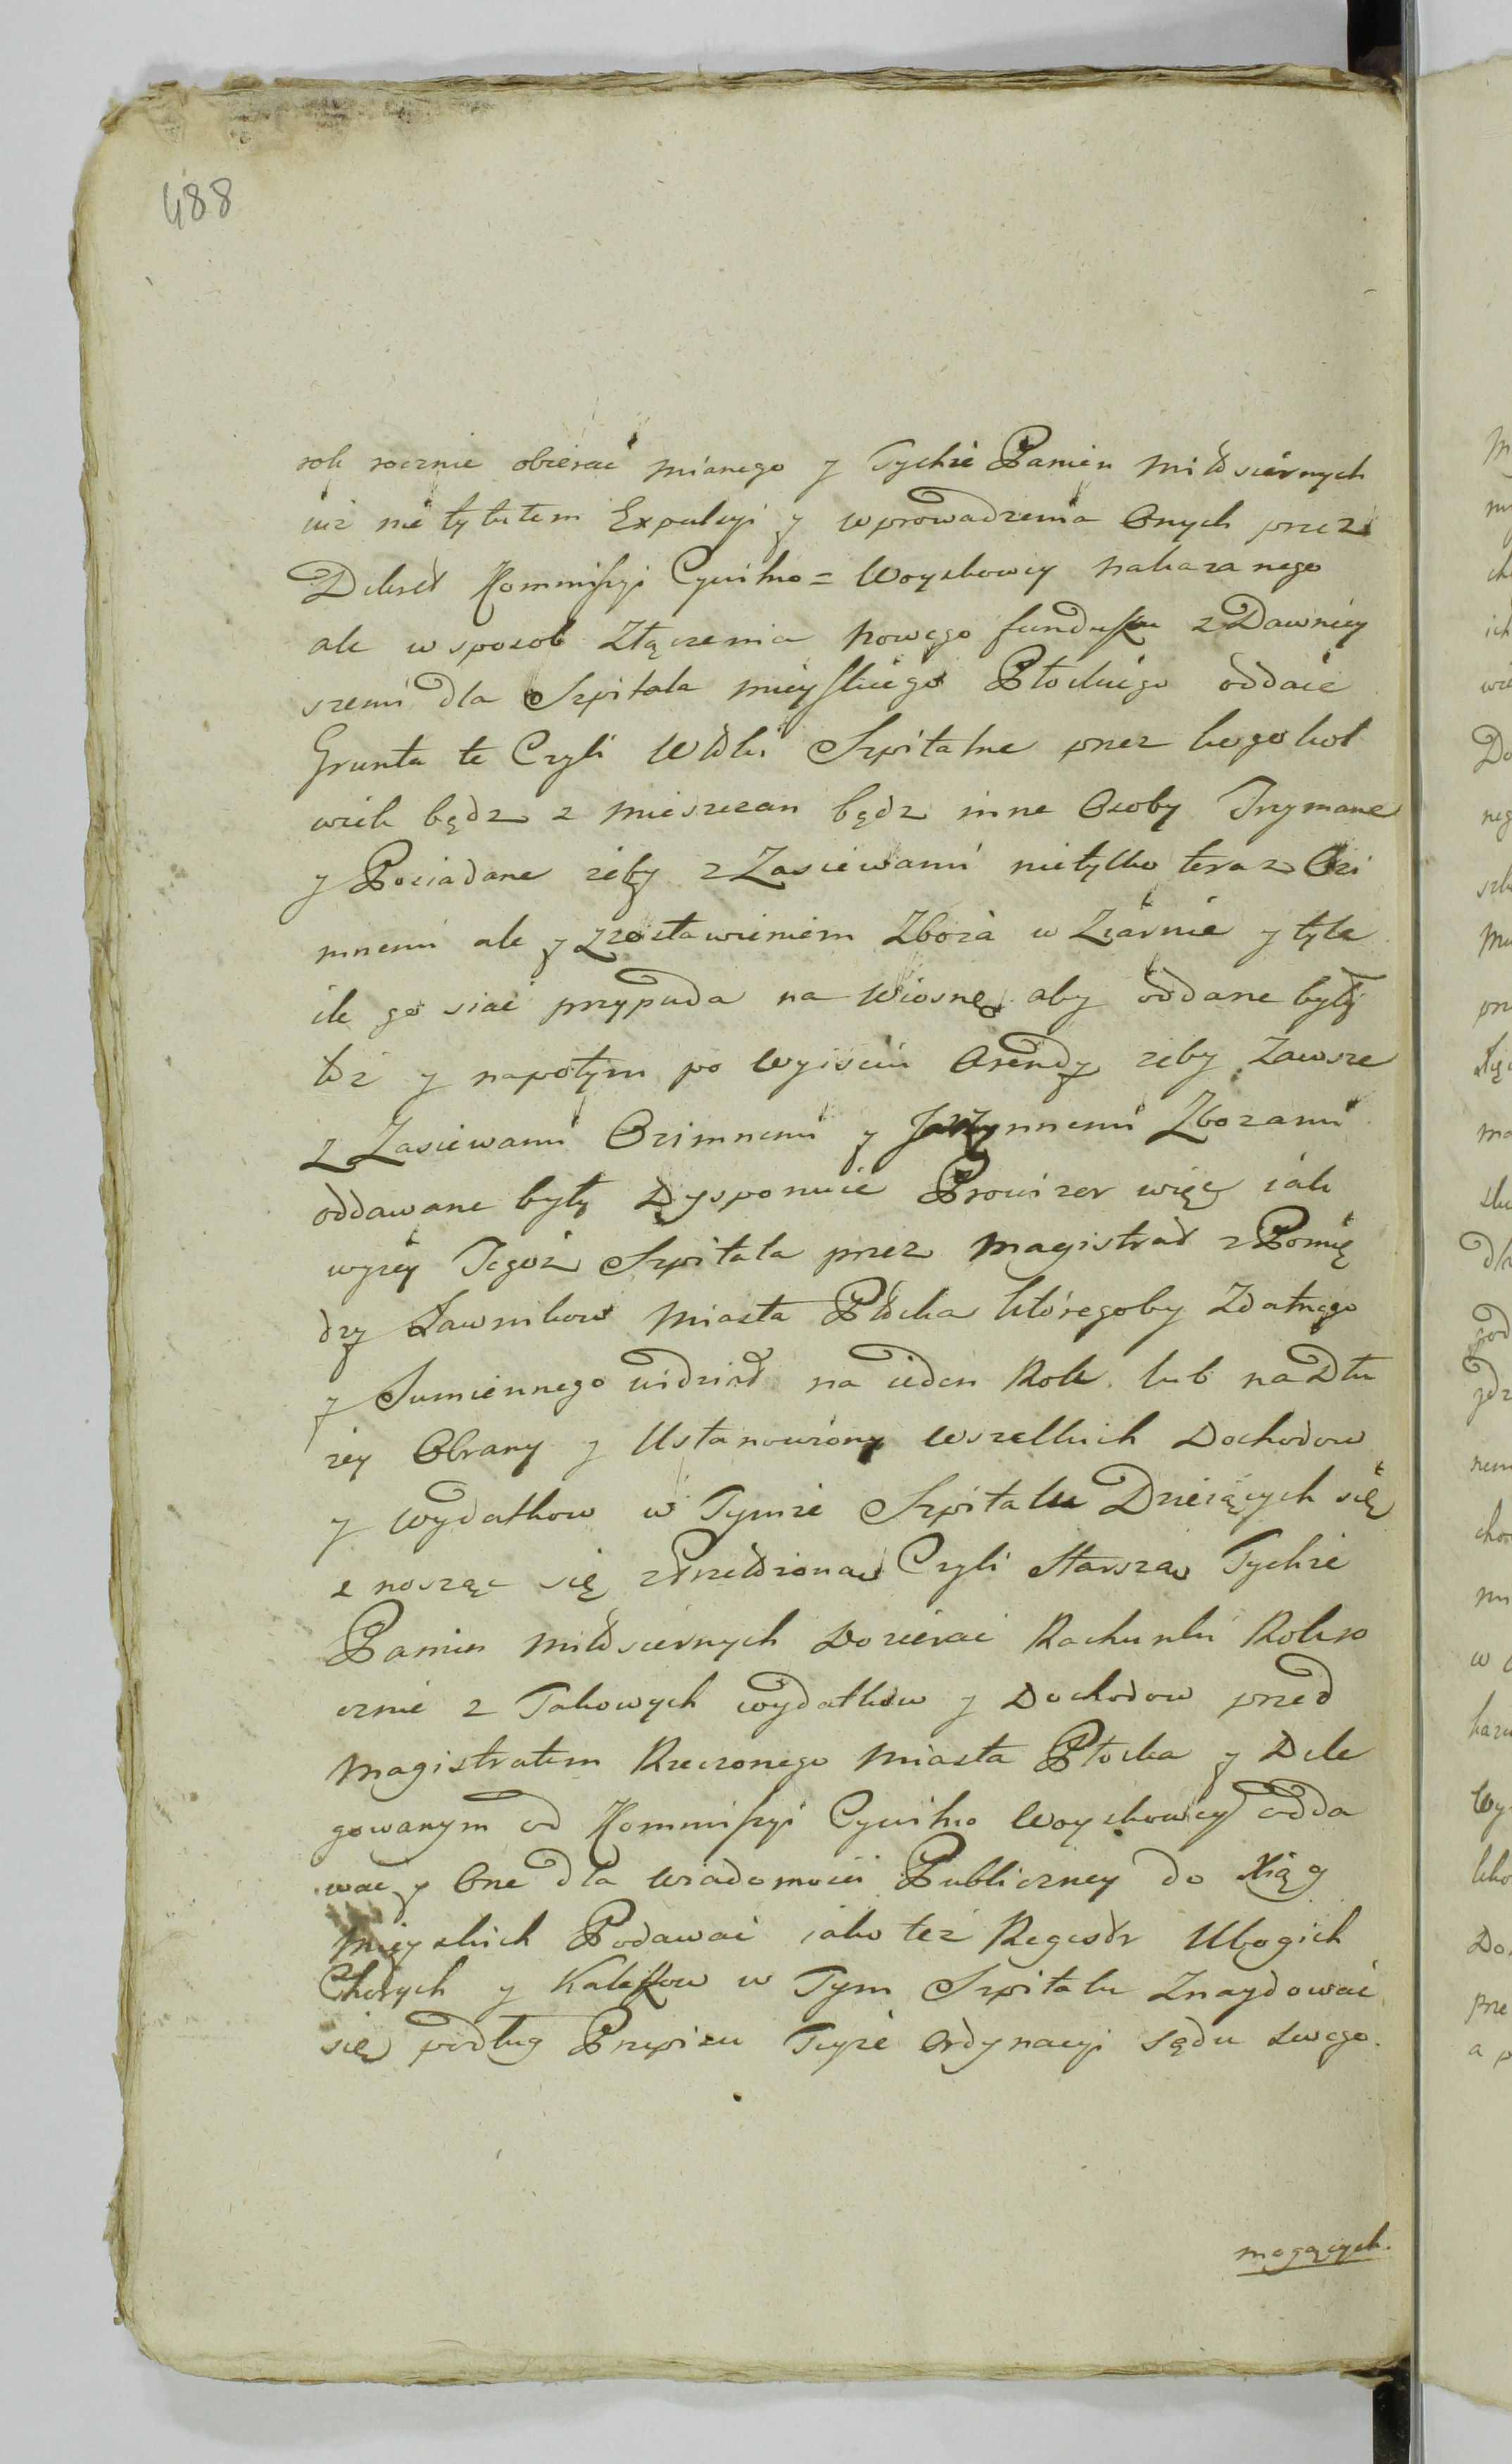 488
rok rocznie obierać mianego y Tychże Panien miłłsiernych
iuż nie tytułem Expulsyi y wprowadzenia Onych przez
Dekret Kommissyi Cywilno = Woyskowey nakazanego
ale w sposob złączenia nowego funduszu z Dawniey
szemi dla Szpitala mieyskiego Płockiego oddaie
Grunta te Czyli Włłki Szpitalne przez kogokol
wiek będz z mieszczan będz inne Osoby Trzymane
y Posiadane żeby z Zasiewami nietylko teraz Ozi
mnemi ale y zzostawieniem Zboża w Ziarnie y tyle
ile go siać przypada na Wiosnę aby oddane były
łłż y napotym po Wyiściu Arendy żeby Zawsze
z Zasiewami Ozimnemi y Jarzynnemi Zbozami
oddawane były Dysponuie Prowizer więc iak
wyżey Tegoż Szpitala przez Magistrat z Pomię
dzy Ławnikow Miasta Płłcka któregoby Zdatnego
y Sumiennego widział na ieden Rok lub na Dłu
żey Obrany y Ustanowiony wszelkich Dochodow
y Wydatkow w Tymże Szpitalu Dzieiących się
znosząc się z Przełłżoną Czyli Starszą Tychże
Panien miłłsiernych Dozierać Rachunki Rokro
cznie z Takowych wydatkow y Dochodow przed
Magistratem Rzeczonego Miasta Płocka y Dele
gowanym od Kommissyi Cywilno Woyskowey odda
wać y One dla Wiadomości Publiczney do Xiąg
Mieyskich Podawać iako też Regestr Ubogich
Chorych y Kalekow w Tym Szpitalu Znaydować
się podług Przepisu Teyże Ordynacyi Sądu Swego.
mogących.